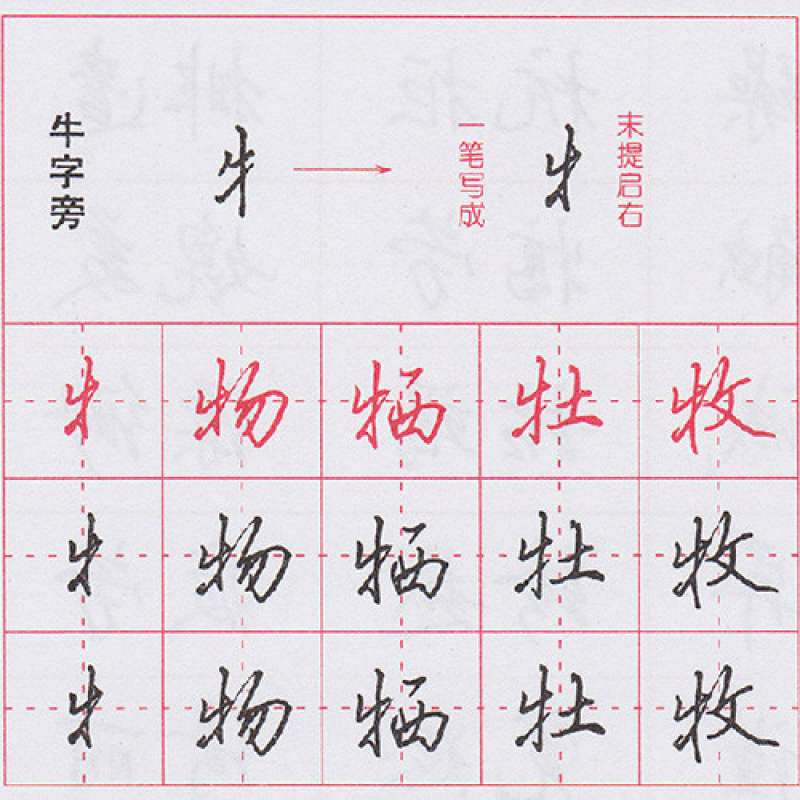 牛字旁
牜
一笔写成
牜
末提启右
牜 物 牺 牡 牧
牜 物 牺 牡 牧
牜 物 牺 牡 牧